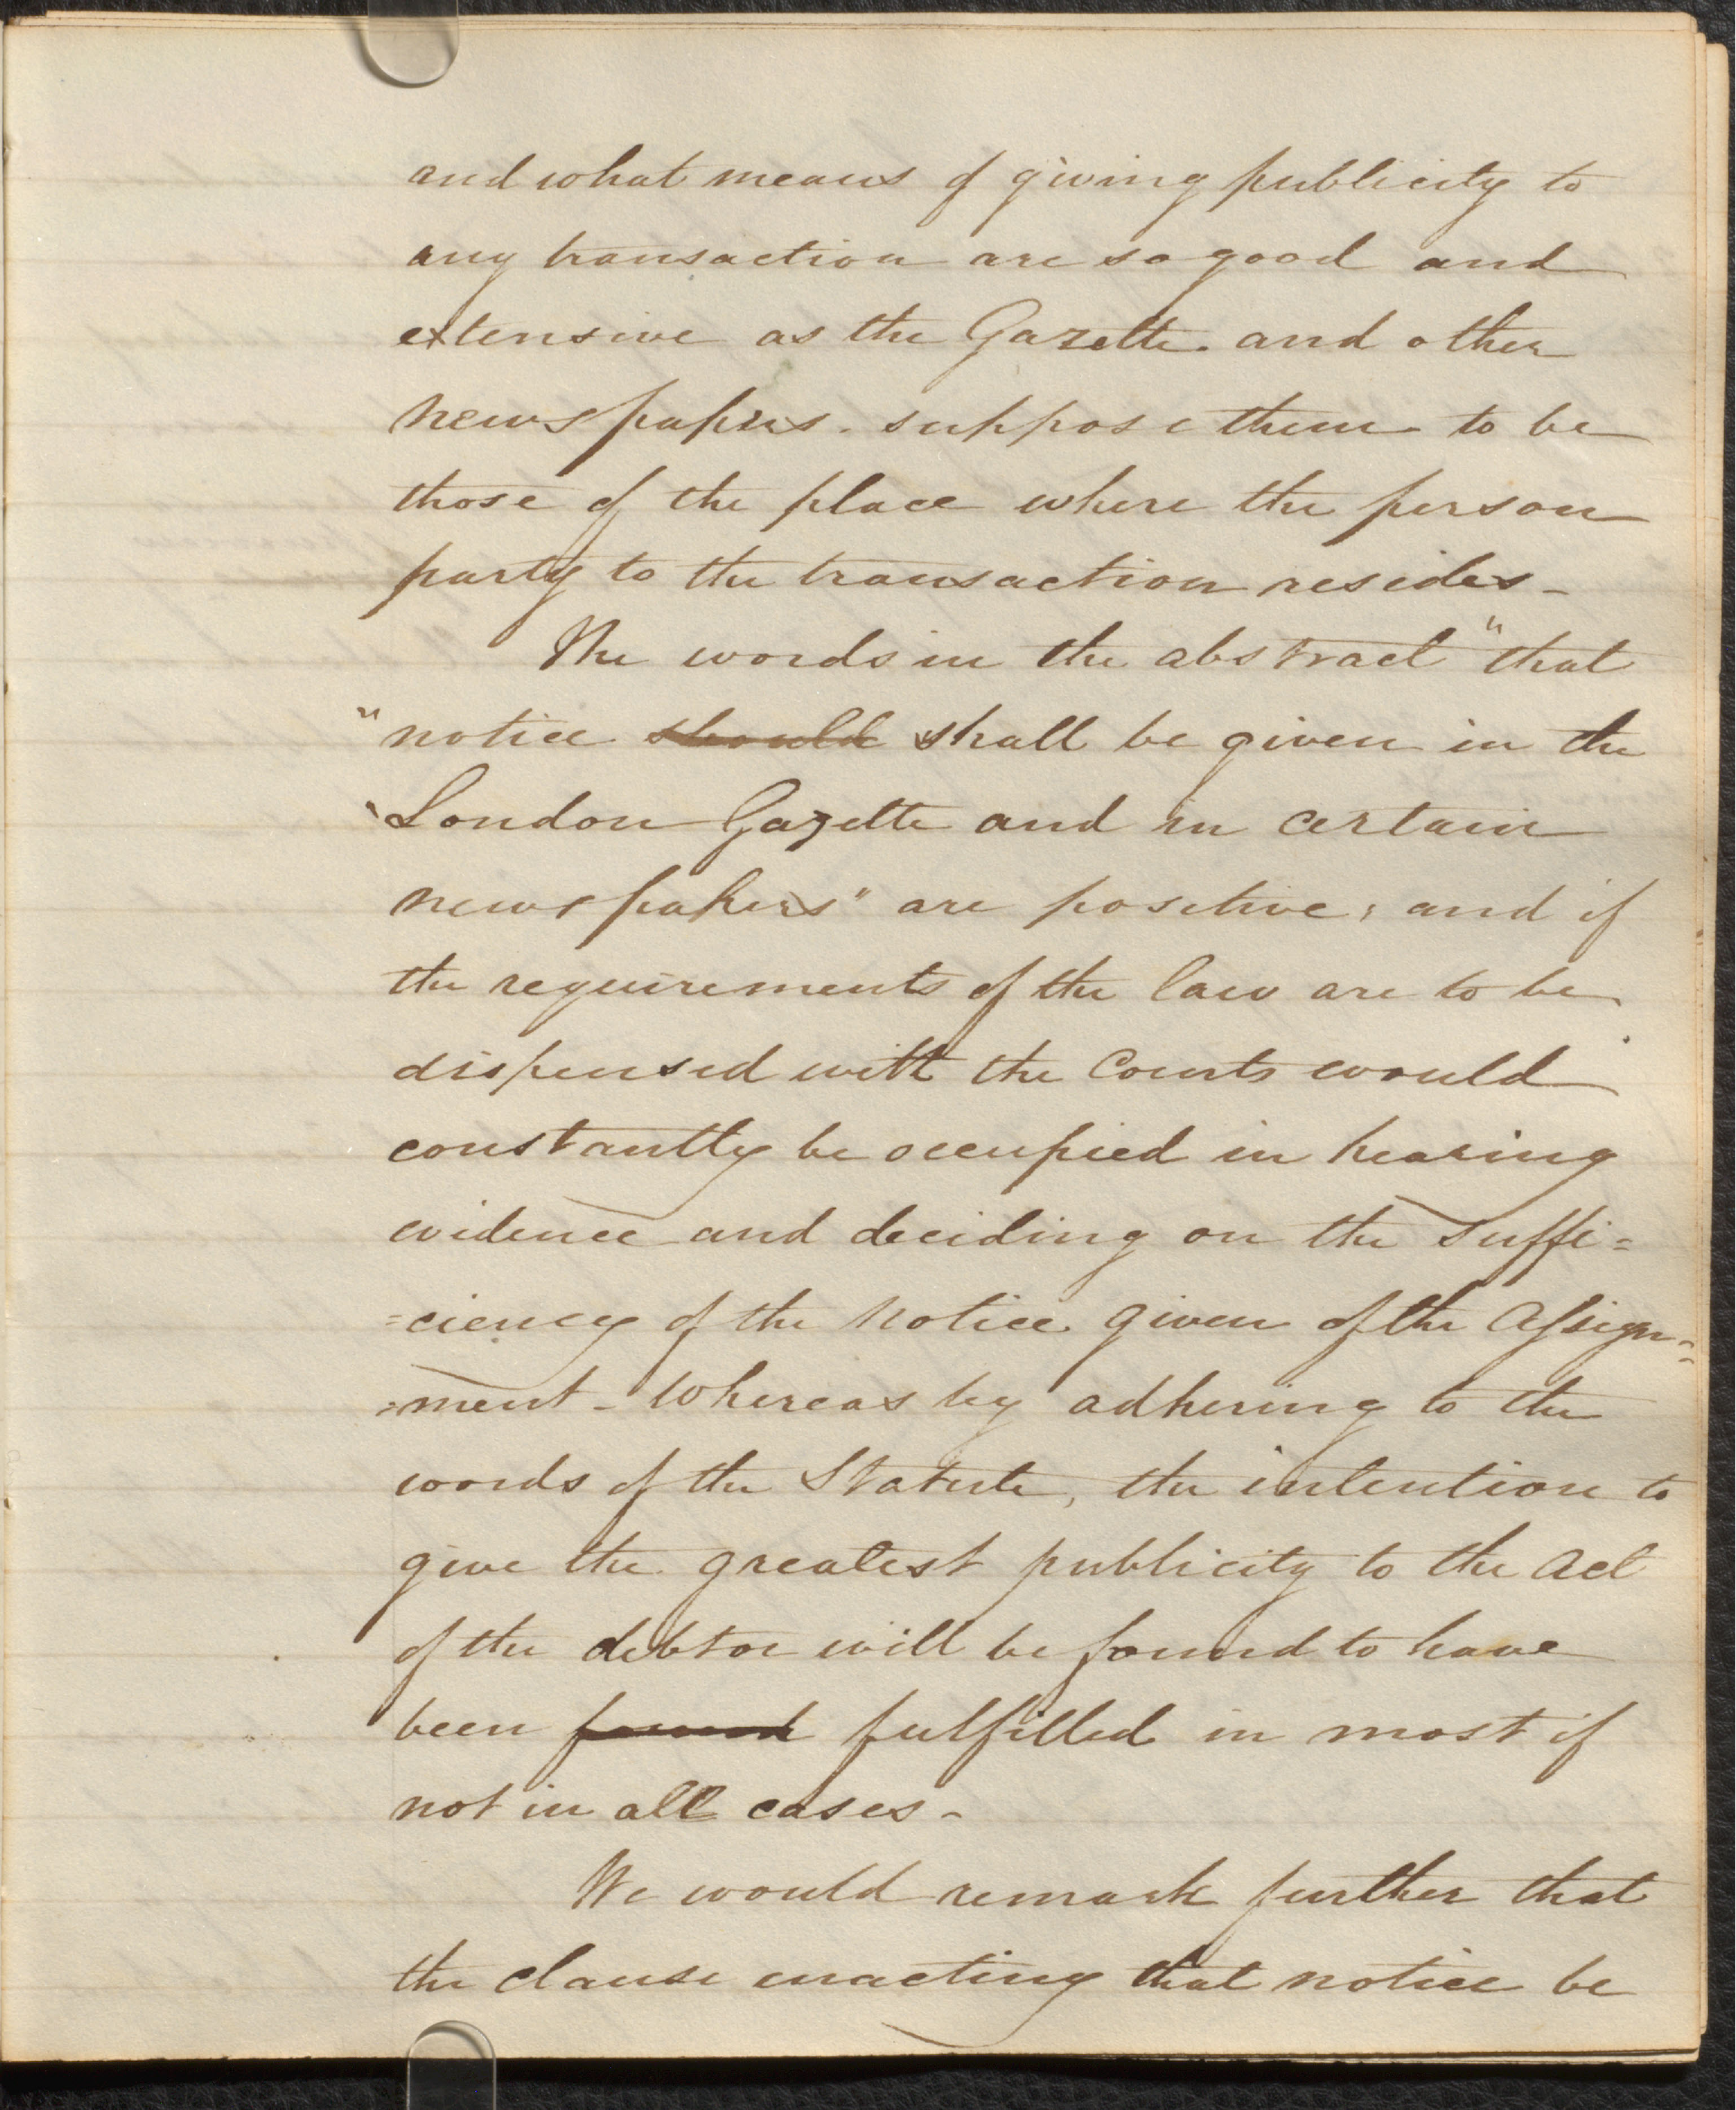 and what means of giving publicity to
any transaction are so good and
extensive as the Gazette. and other
newspapers. suppose them to be
those of the place where the person
party to the transaction resides -
The words in the abstract "that
"notice should shall be given in the
"London Gazette and in certain
newspapers" are positive; and if
the requirements of the law are to be
dispensed with the Courts would
constantly be occupied in hearing
evidence and deciding on the suffi=
=ciency of the notice given of the Assign=
=ment - Whereas by adhering to the
words of the Statute, the intention to
give the greatest publicity to the Act
of the debtor will be found to have
been found fulfilled in most if
not in all cases -
We would remark further that
the clause enacting that notice be